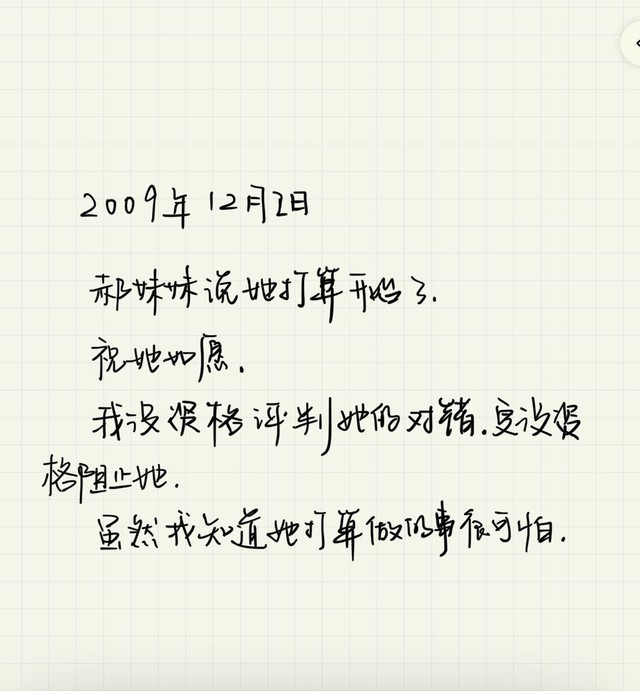 2009年12月2日
郝妹妹说她打算开始了.
祝她如愿.
我没资格评判她的对错.更没资
格阻止她.
虽然我知道她打算做的事很可怕.